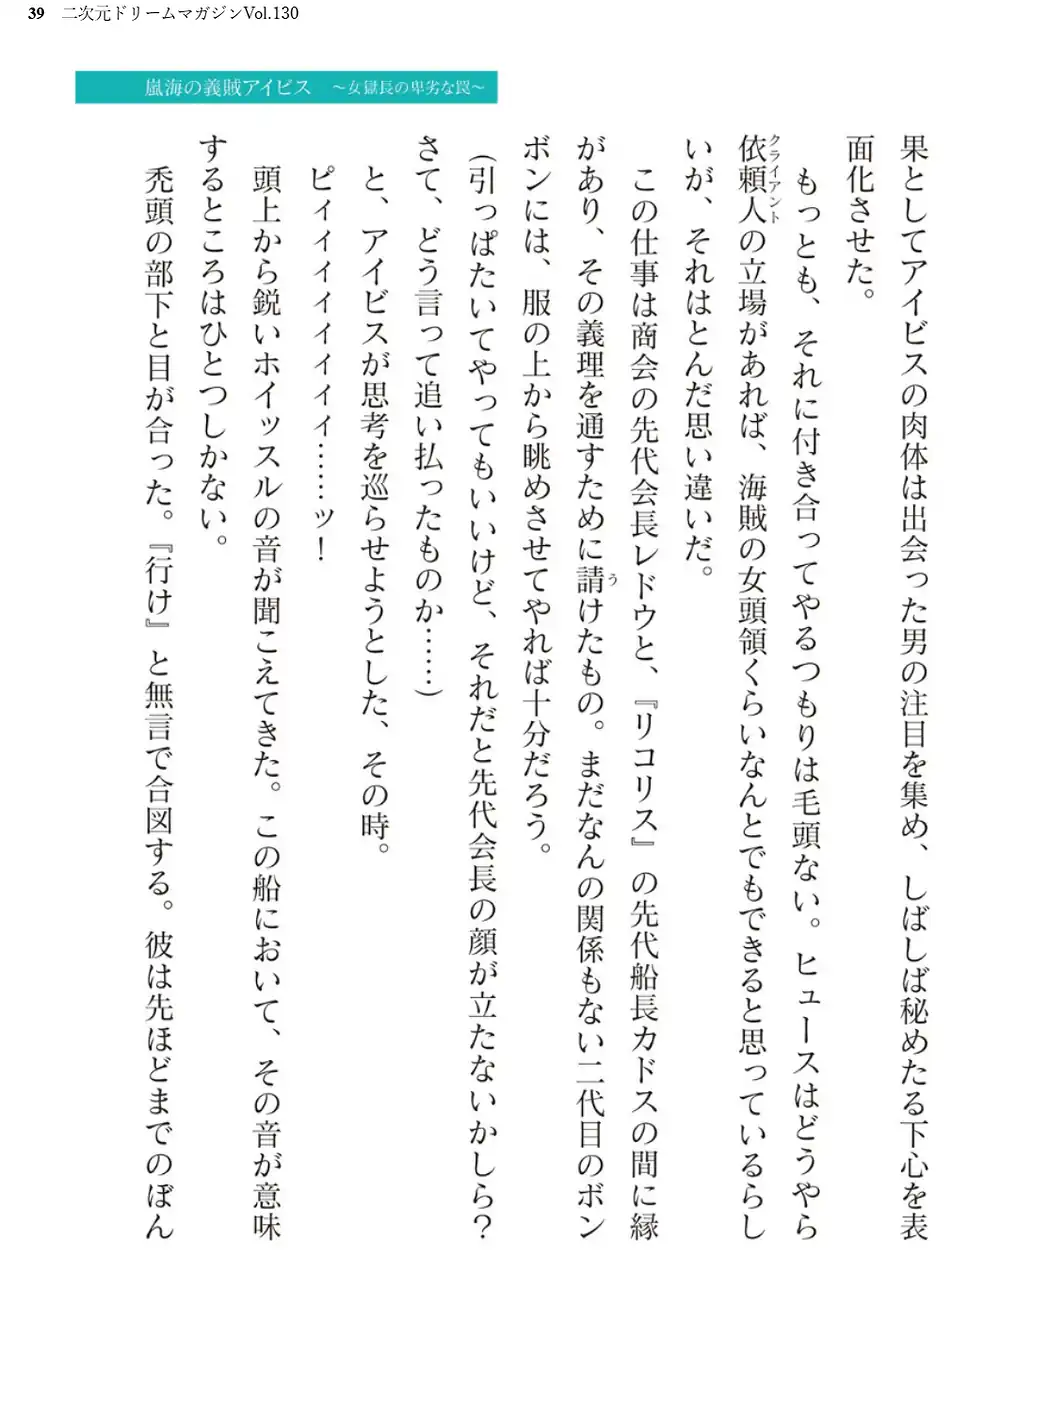 39 二次元ドリームマガジンVol.130
嵐海の義賊アイビス　〜女獄長の卑劣な罠〜
果としてアイビスの肉体は出会った男の注目を集め、しばしば秘めたる下心を表
面化させた。
　もっとも、それに付き合ってやるつもりは毛頭ない。ヒュースはどうやら
依頼人の立場があれば、海賊の女頭領くらいなんとでもできると思っているらし
クライアント
いが、それはとんだ思い違いだ。
　この仕事は商会の先代会長レドウと、『リコリス』の先代船長カドスの間に縁
があり、その義理を通すために請けたもの。まだなんの関係もない二代目のボン
う
ボンには、服の上から眺めさせてやれば十分だろう。
（引っぱたいてやってもいいけど、それだと先代会長の顔が立たないかしら？
さて、どう言って追い払ったものか……）
　と、アイビスが思考を巡らせようとした、その時。
　ピィィィィィィィ……ッ！
　頭上から鋭いホイッスルの音が聞こえてきた。この船において、その音が意味
するところはひとつしかない。
　禿頭の部下と目が合った。『行け』と無言で合図する。彼は先ほどまでのぼん